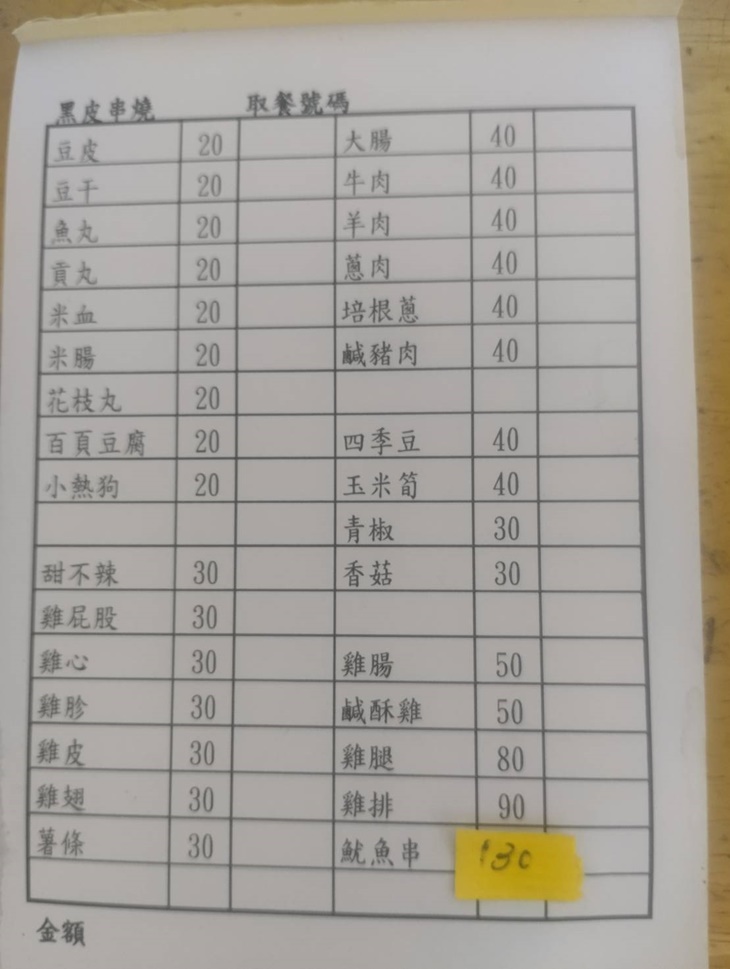 黑皮串燒 取餐號碼
豆皮 20 大腸 40
豆干 20 牛肉 40
魚丸 20 羊肉 40
貢丸 20 蔥肉 40
米血 20 培根蔥 40
米腸 20 鹹豬肉 40
花枝丸 20
百頁豆腐 20 四季豆 40
小熱狗 20 玉米筍 40
青椒 30
甜不辣 30 香菇 30
雞屁股 30
雞心 30 雞腸 50
雞胗 30 鹹酥雞 50
雞皮 30 雞腿 80
雞翅 30 雞排 90
薯條 30 魷魚串 130
金額